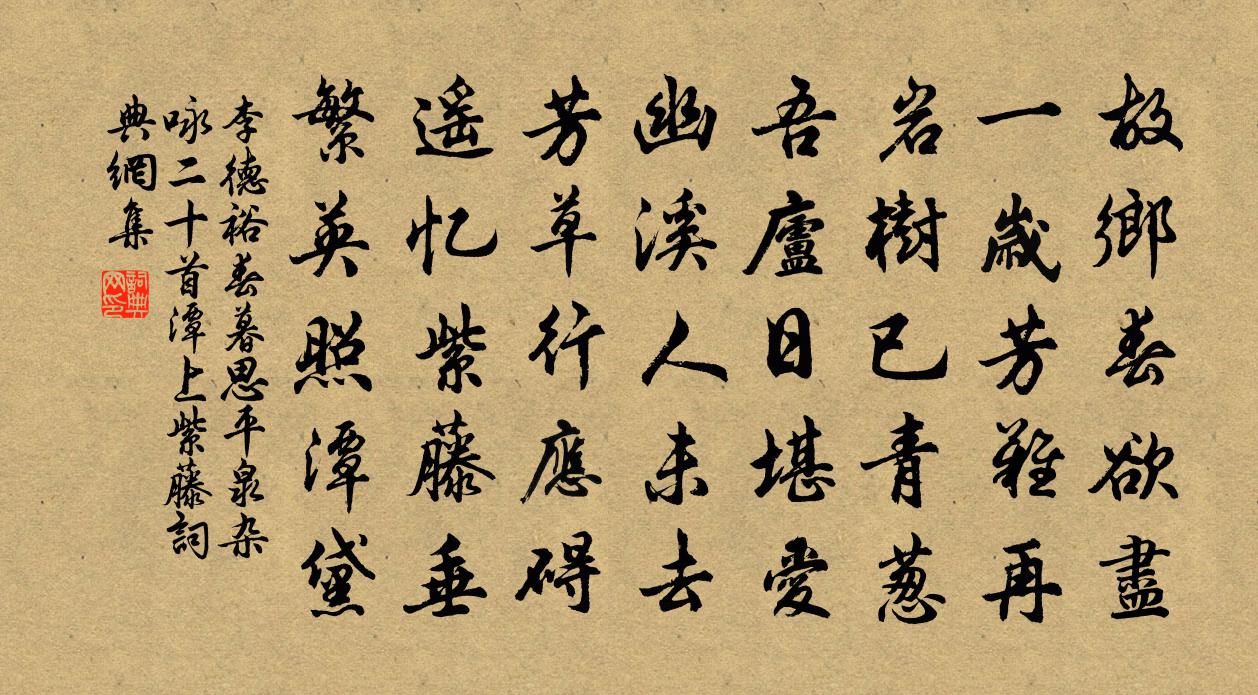 故鄉春欲盡
一歲芳難再
岩樹已青葱
吾廬日堪愛
幽溪人未去
芳草行應碍
遥忆紫藤垂
繁英照潭黛
李德裕春暮思平泉杂
咏二十首潭上紫藤詞
典網集
詞典
网印